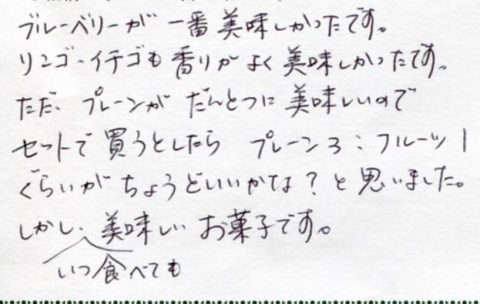 ブルーベリーが一番美味しかったです。
リンゴ・イチゴも香りがよく美味しかったです。
ただ、プレーンがだんとつに美味しいので
セットで買うとしたら プレーン3:フルーツ1
ぐらいがちょうどいいかな?と思いました。
しかし、美味しいお菓子です。
いつ食べても